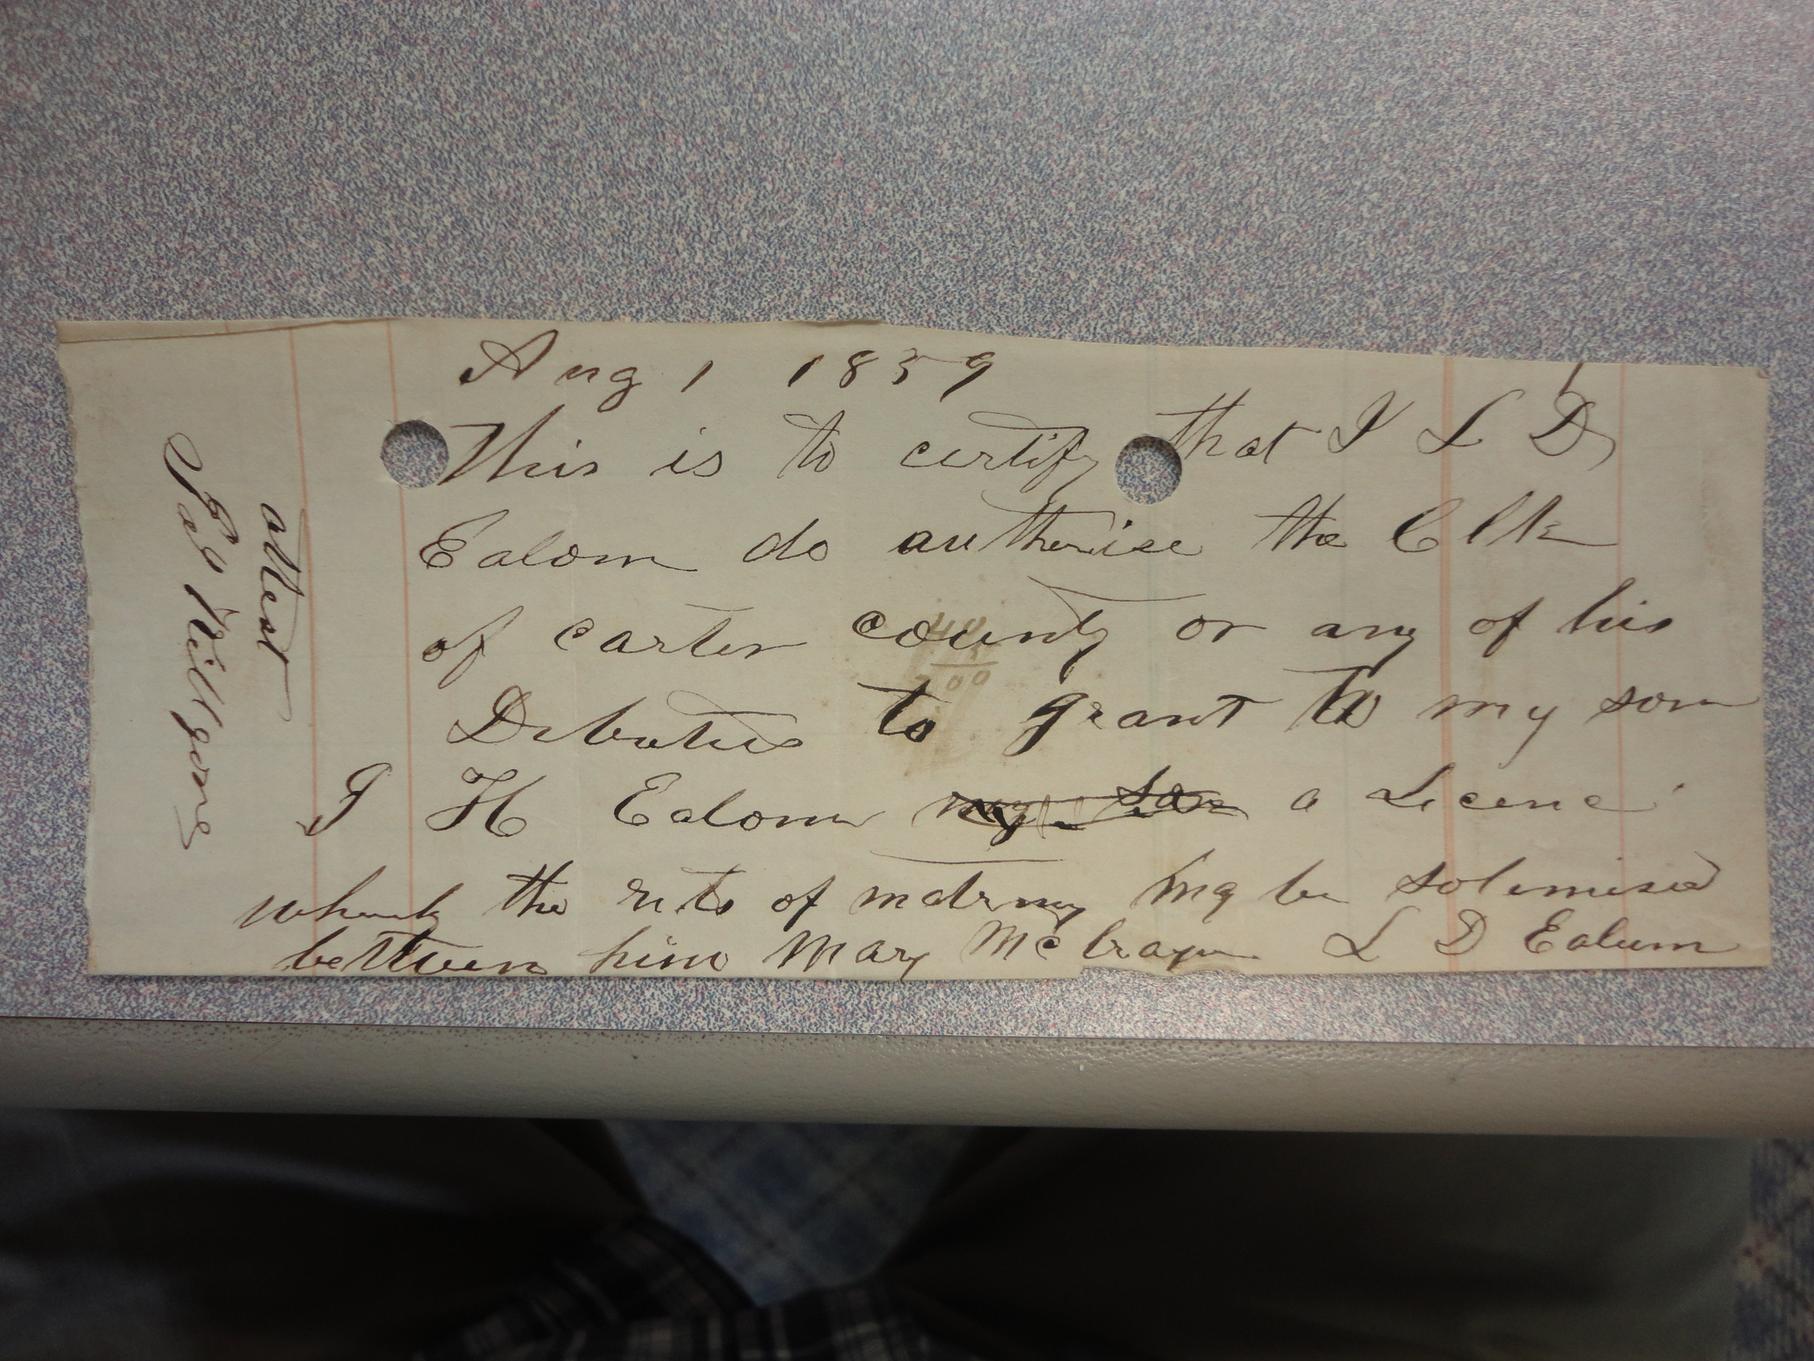 Aug 1 1859
This is to certify that I L D
Ealom do autherise the Clk
of carter county or any of his
Debuties to grant to my son
J H Ealom my son a Licene
whereby the rits of matrmy may be solemised
between him Mary McCrayr L D Ealum
attest
Jas Killgore